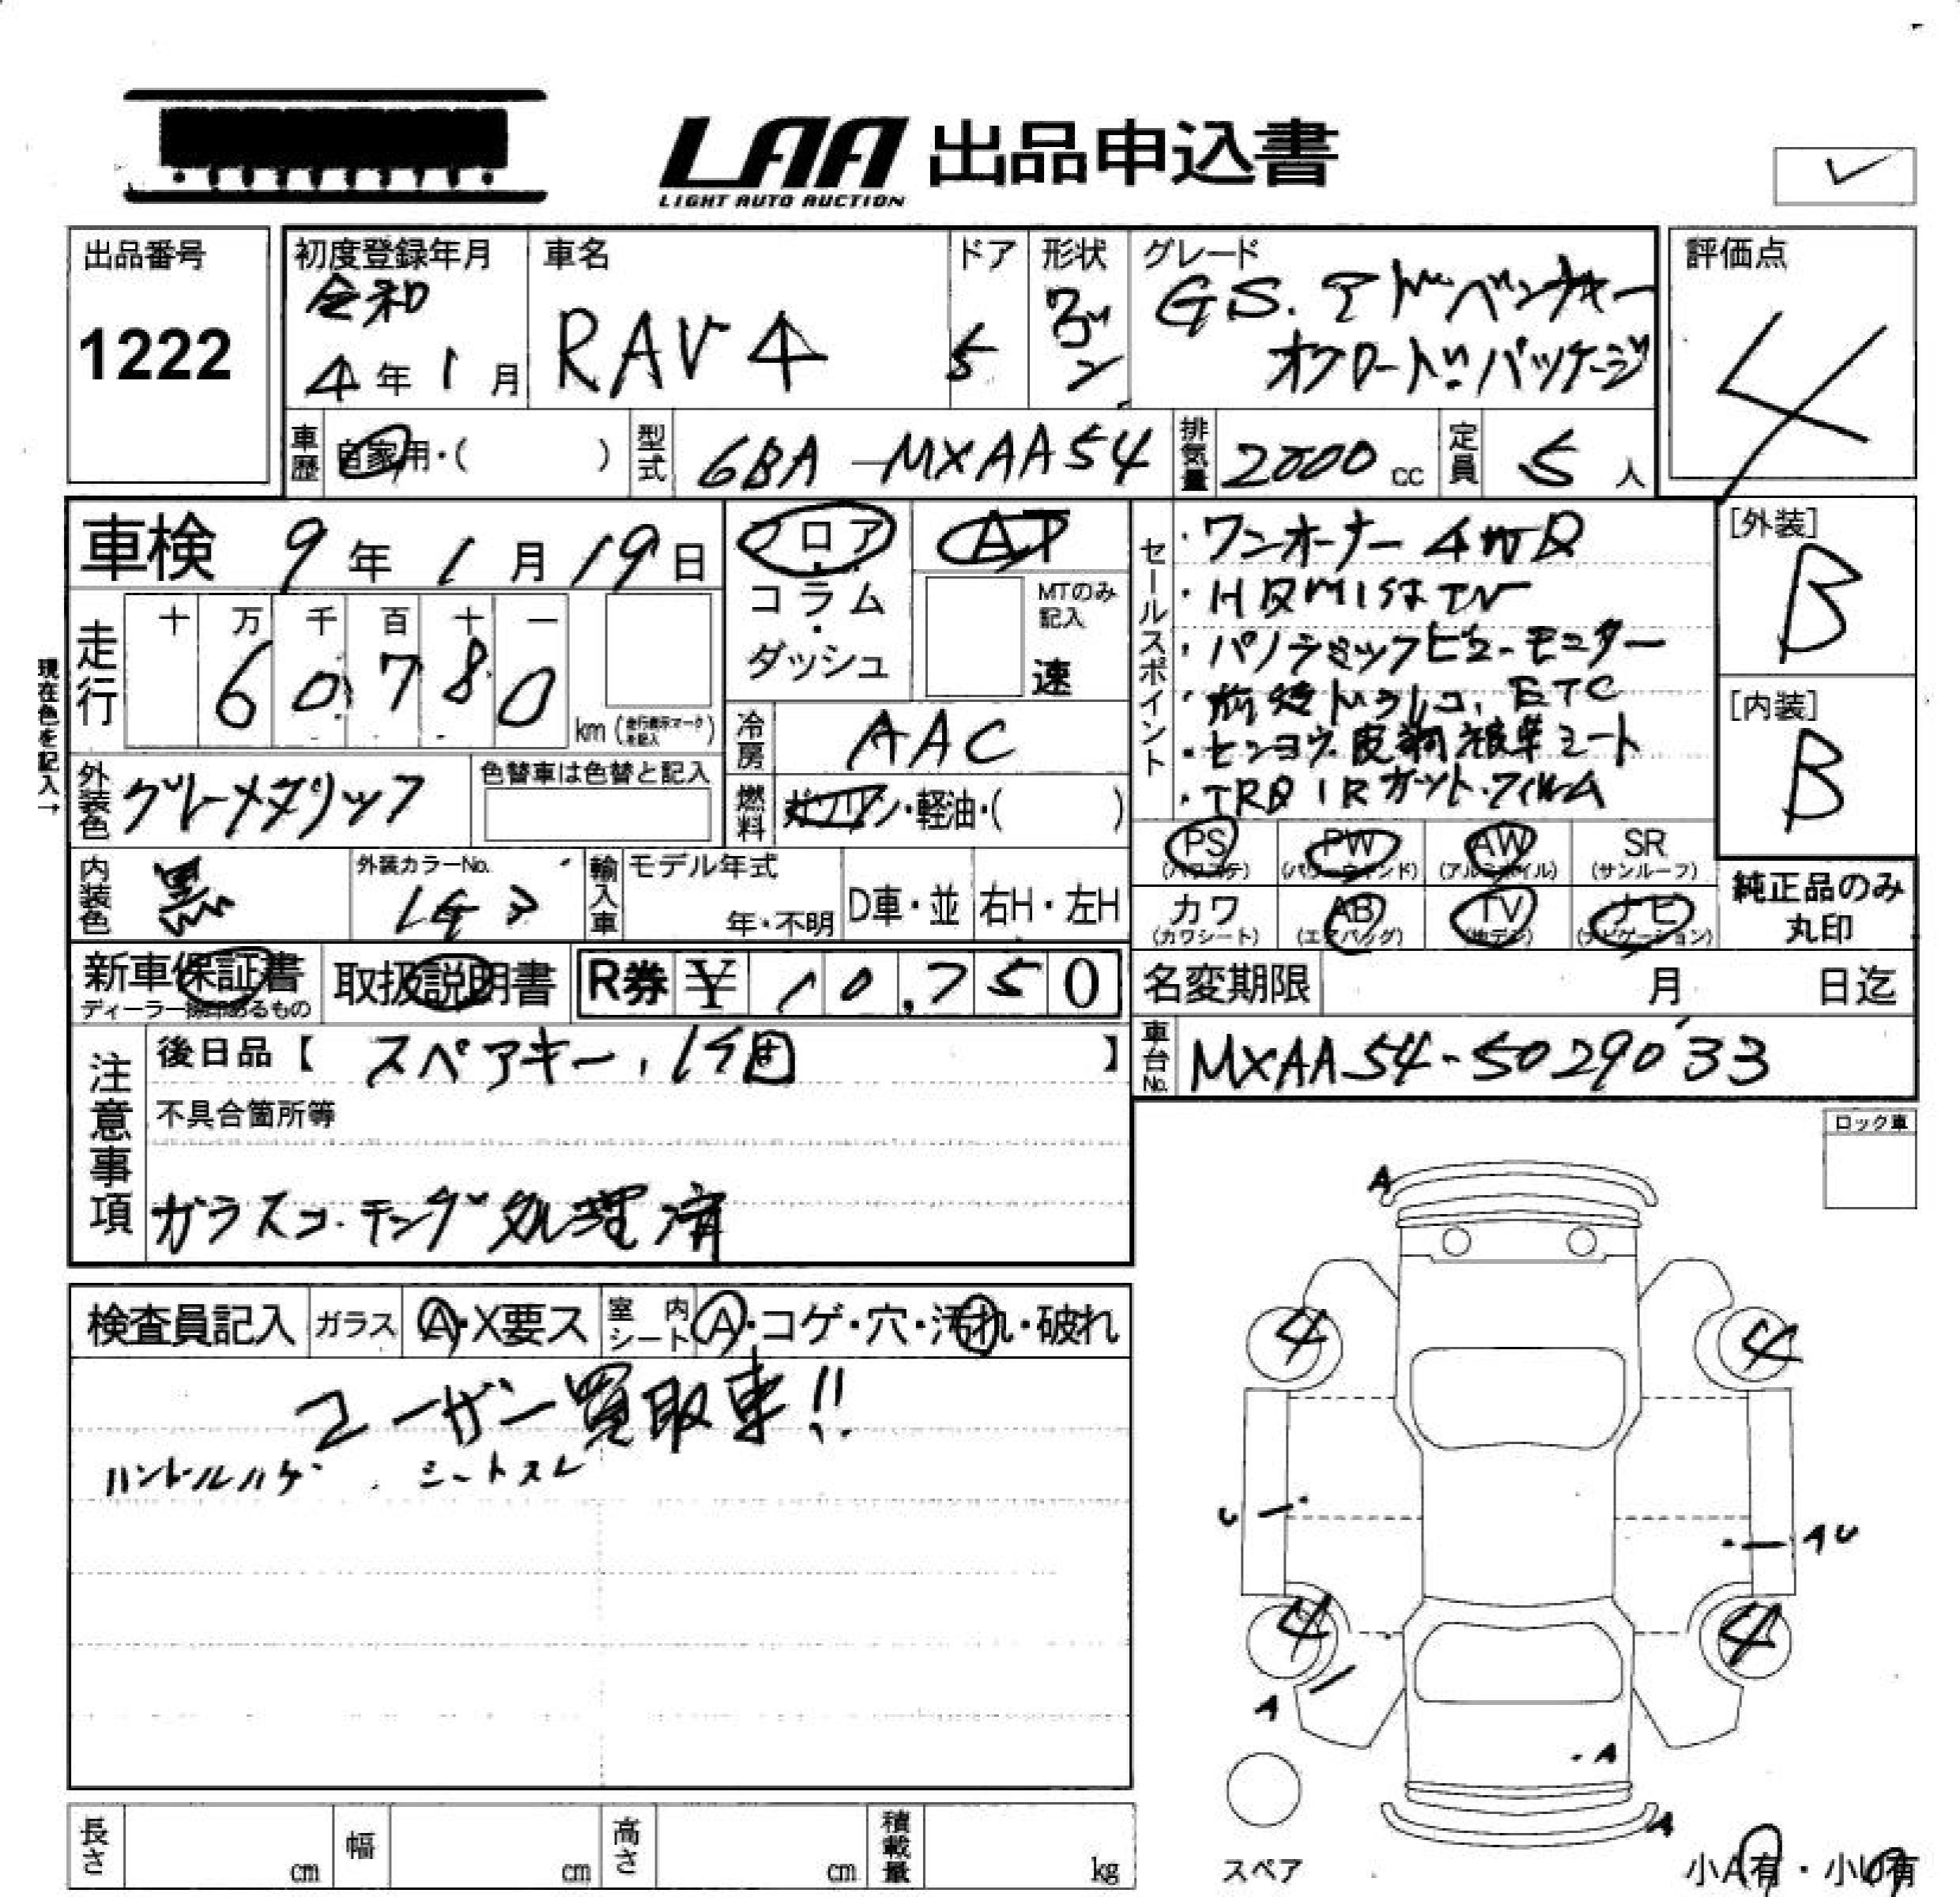 LAA 出品申込書
LIGHT AUTO AUCTION
出品番号
1222
初度登録年月
令和
4年1月
車名
RAV4
ドア
5
形状
ワゴン
グレード
GS.アドベンチャー
オフロード.パッケージ
評価点
4
車歴
自家用・( )
型式
6BA-MXAA54
排気量
2000cc
定員
5人
車検 9年1月19日
走行
十 万 千 百 十 一
60,780
km(走行表示マークを記入)
現在色を記入→
フロア
・
コラム
・
ダッシュ
AT
MTのみ
記入
速
冷房
AAC
燃料
ガソリン・軽油・( )
外装色
グレーメタリック
色替車は色替と記入
内装色
黒
外装カラーNo.
輸入車
モデル年式
年・不明
D車・並
右H・左H
セールスポイント
・ワンオーナー 4WD
・パノラミックビュー.モニター
ETC
[外装]
B
[内装]
B
PS
(パワステ)
PW
(パワーウィンド)
AW
(アルミホイル)
SR
(サンルーフ)
カワ
(カワシート)
AB
(エアバッグ)
TV
(地デジ)
ナビ
(ナビゲーション)
純正品のみ
丸印
新車保証書
ディーラー捺印あるもの
取扱説明書
R券 ¥10,750
名変期限 月 日迄
注意事項
後日品【 スペアキー,1個 】
不具合箇所等
ガラスコーテング処理済
車台No.
MXAA54-5029033
ロック車
検査員記入
ガラス
A・X要ス
室内シート
A・コゲ・穴・汚れ・破れ
ユーザー買取車!!
ハンドルハゲ シートスレ
A
4 4
U
AU
4 4
A
A
A
スペア
小A有・小U有
長さ cm
幅 cm
高さ cm
積載量 kg